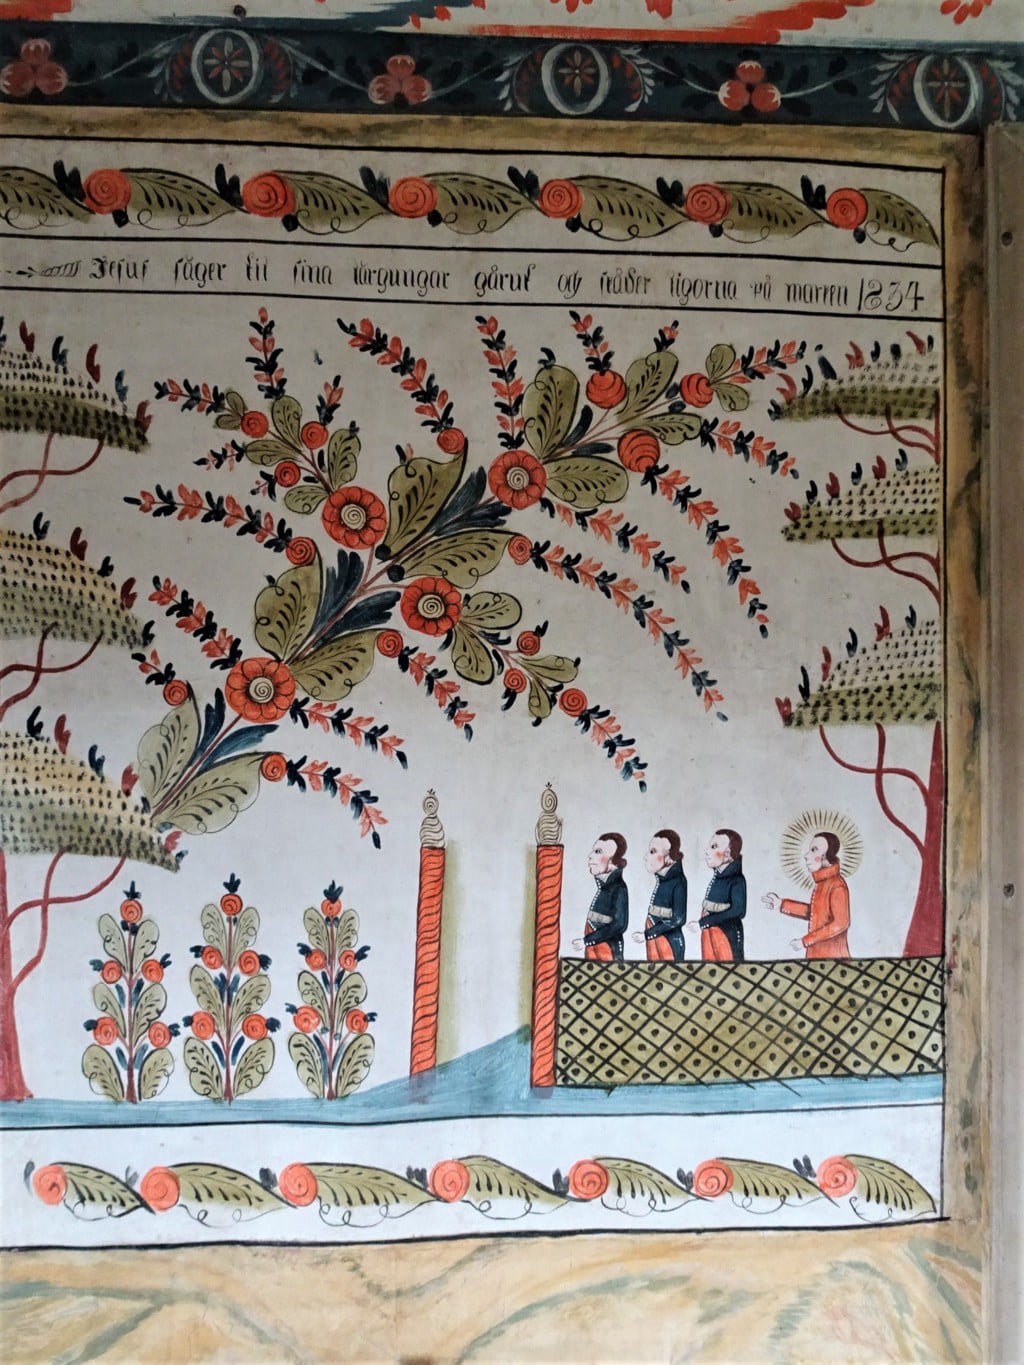 Jesus säger til sina lärgungar gårut och skåder ligorna på marken 1834